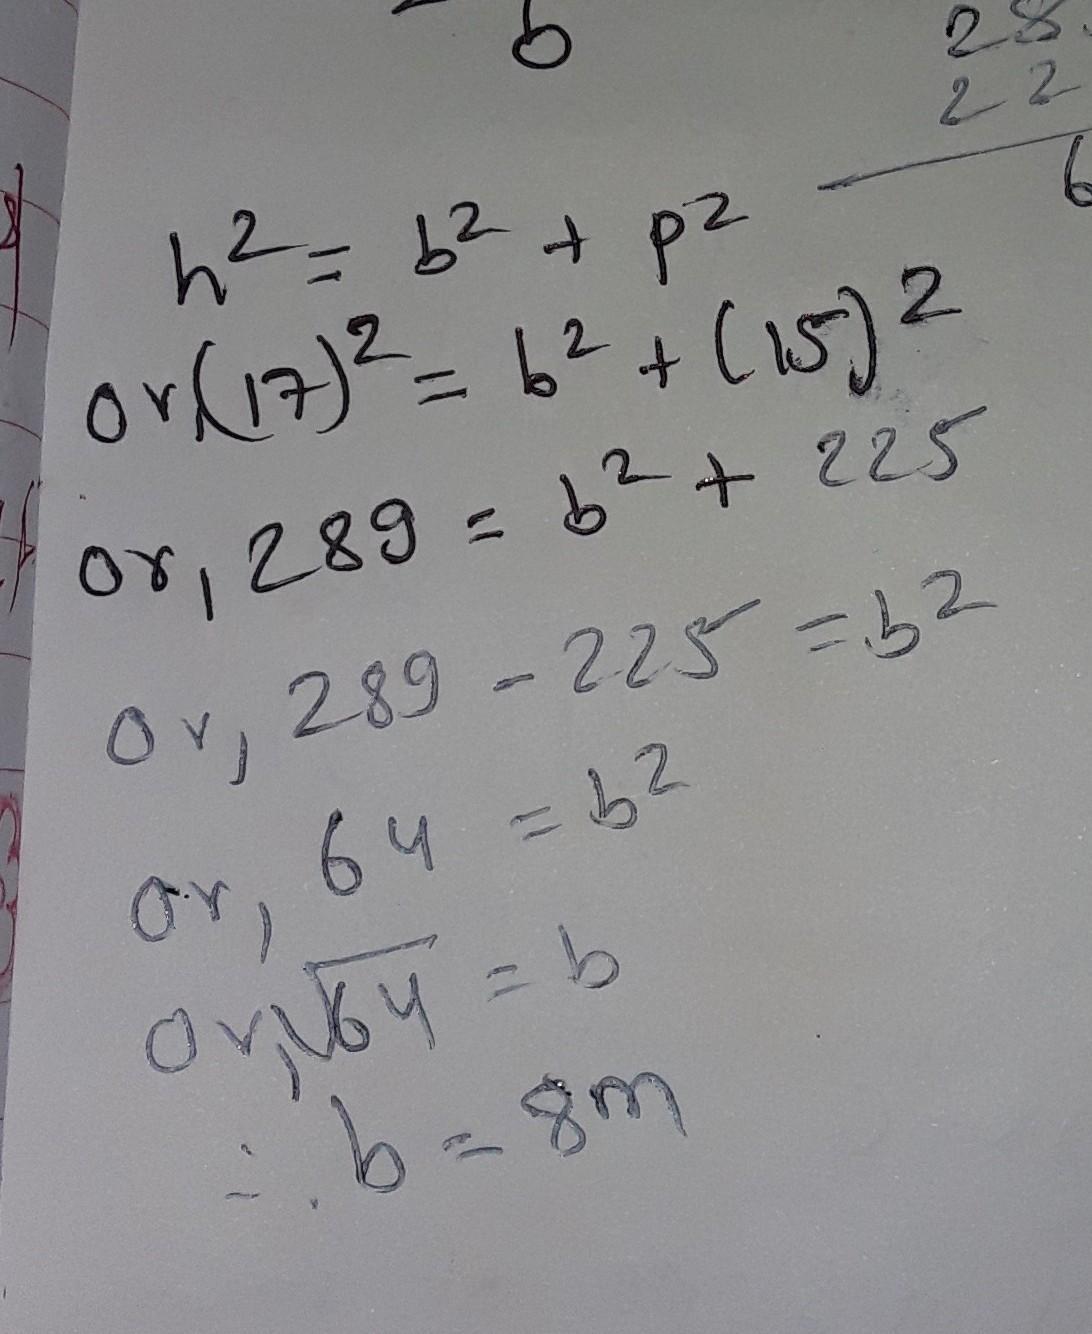 b
28
22
6
h² = b² + p²
or, (17)² = b² + (15)²
or, 289 = b² + 225
or, 289 - 225 = b²
or, 64 = b²
or, √64 = b
∴ b = 8m